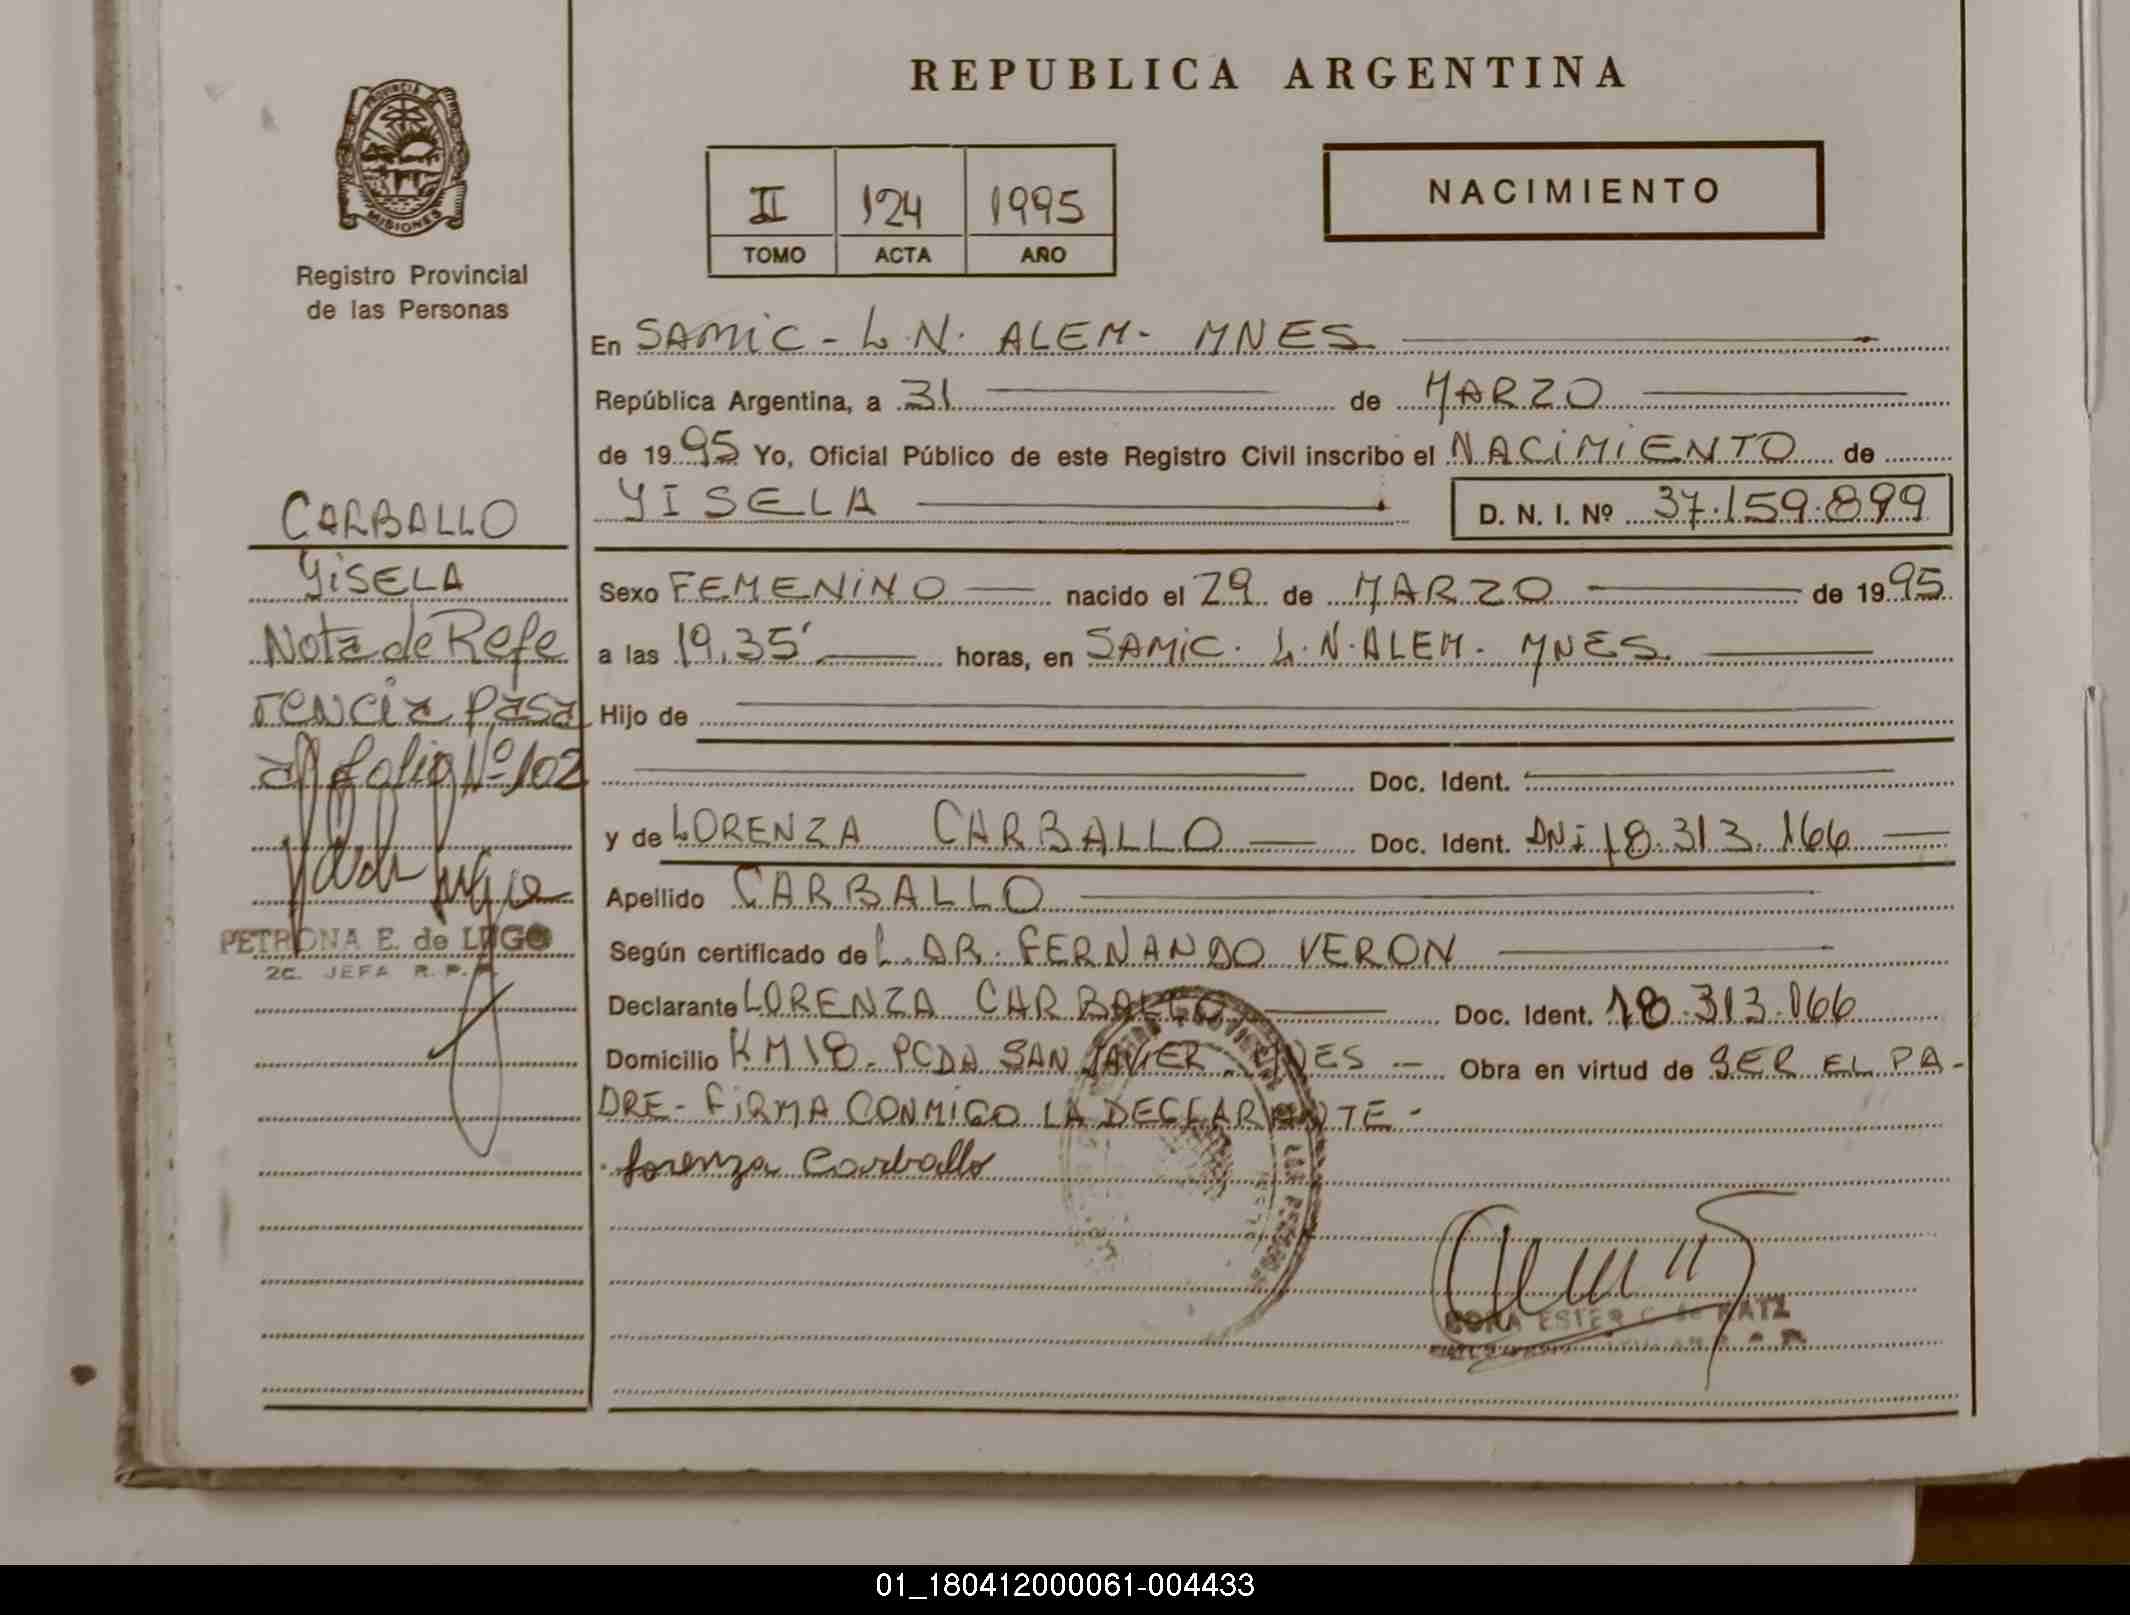 REPUBLICA ARGENTINA
PROVINCIA DE
MISIONES
Registro Provincial
de las Personas
II 124 1995
TOMO ACTA AÑO
NACIMIENTO
En SAMIC - L.N. ALEM - MNES
República Argentina, a 31 de MARZO
de 1995 Yo, Oficial Público de este Registro Civil inscribo el NACIMIENTO de
YISELA D. N. I. Nº 37.159.899
Sexo FEMENINO nacido el 29 de MARZO de 1995
a las 19,35' horas, en SAMIC. L.N. ALEM - MNES
Hijo de
Doc. Ident.
y de LORENZA CARBALLO Doc. Ident. DNI 18.313.166
Apellido CARBALLO
Según certificado de L. DR. FERNANDO VERON
Declarante LORENZA CARBALLO Doc. Ident. 18.313.166
Domicilio KM 18 - PCDA SAN JAVIER - MNES - Obra en virtud de SER EL PA-
DRE - FIRMA CONMIGO LA DECLARANTE -
Lorenza Carballo
CARBALLO
YISELA
Nota de Refe
rencia pasa
al folio Nº 102
PETRONA E. de LUGO
2C. JEFA R. P.
ESTER C. de RATZ
01_180412000061-004433